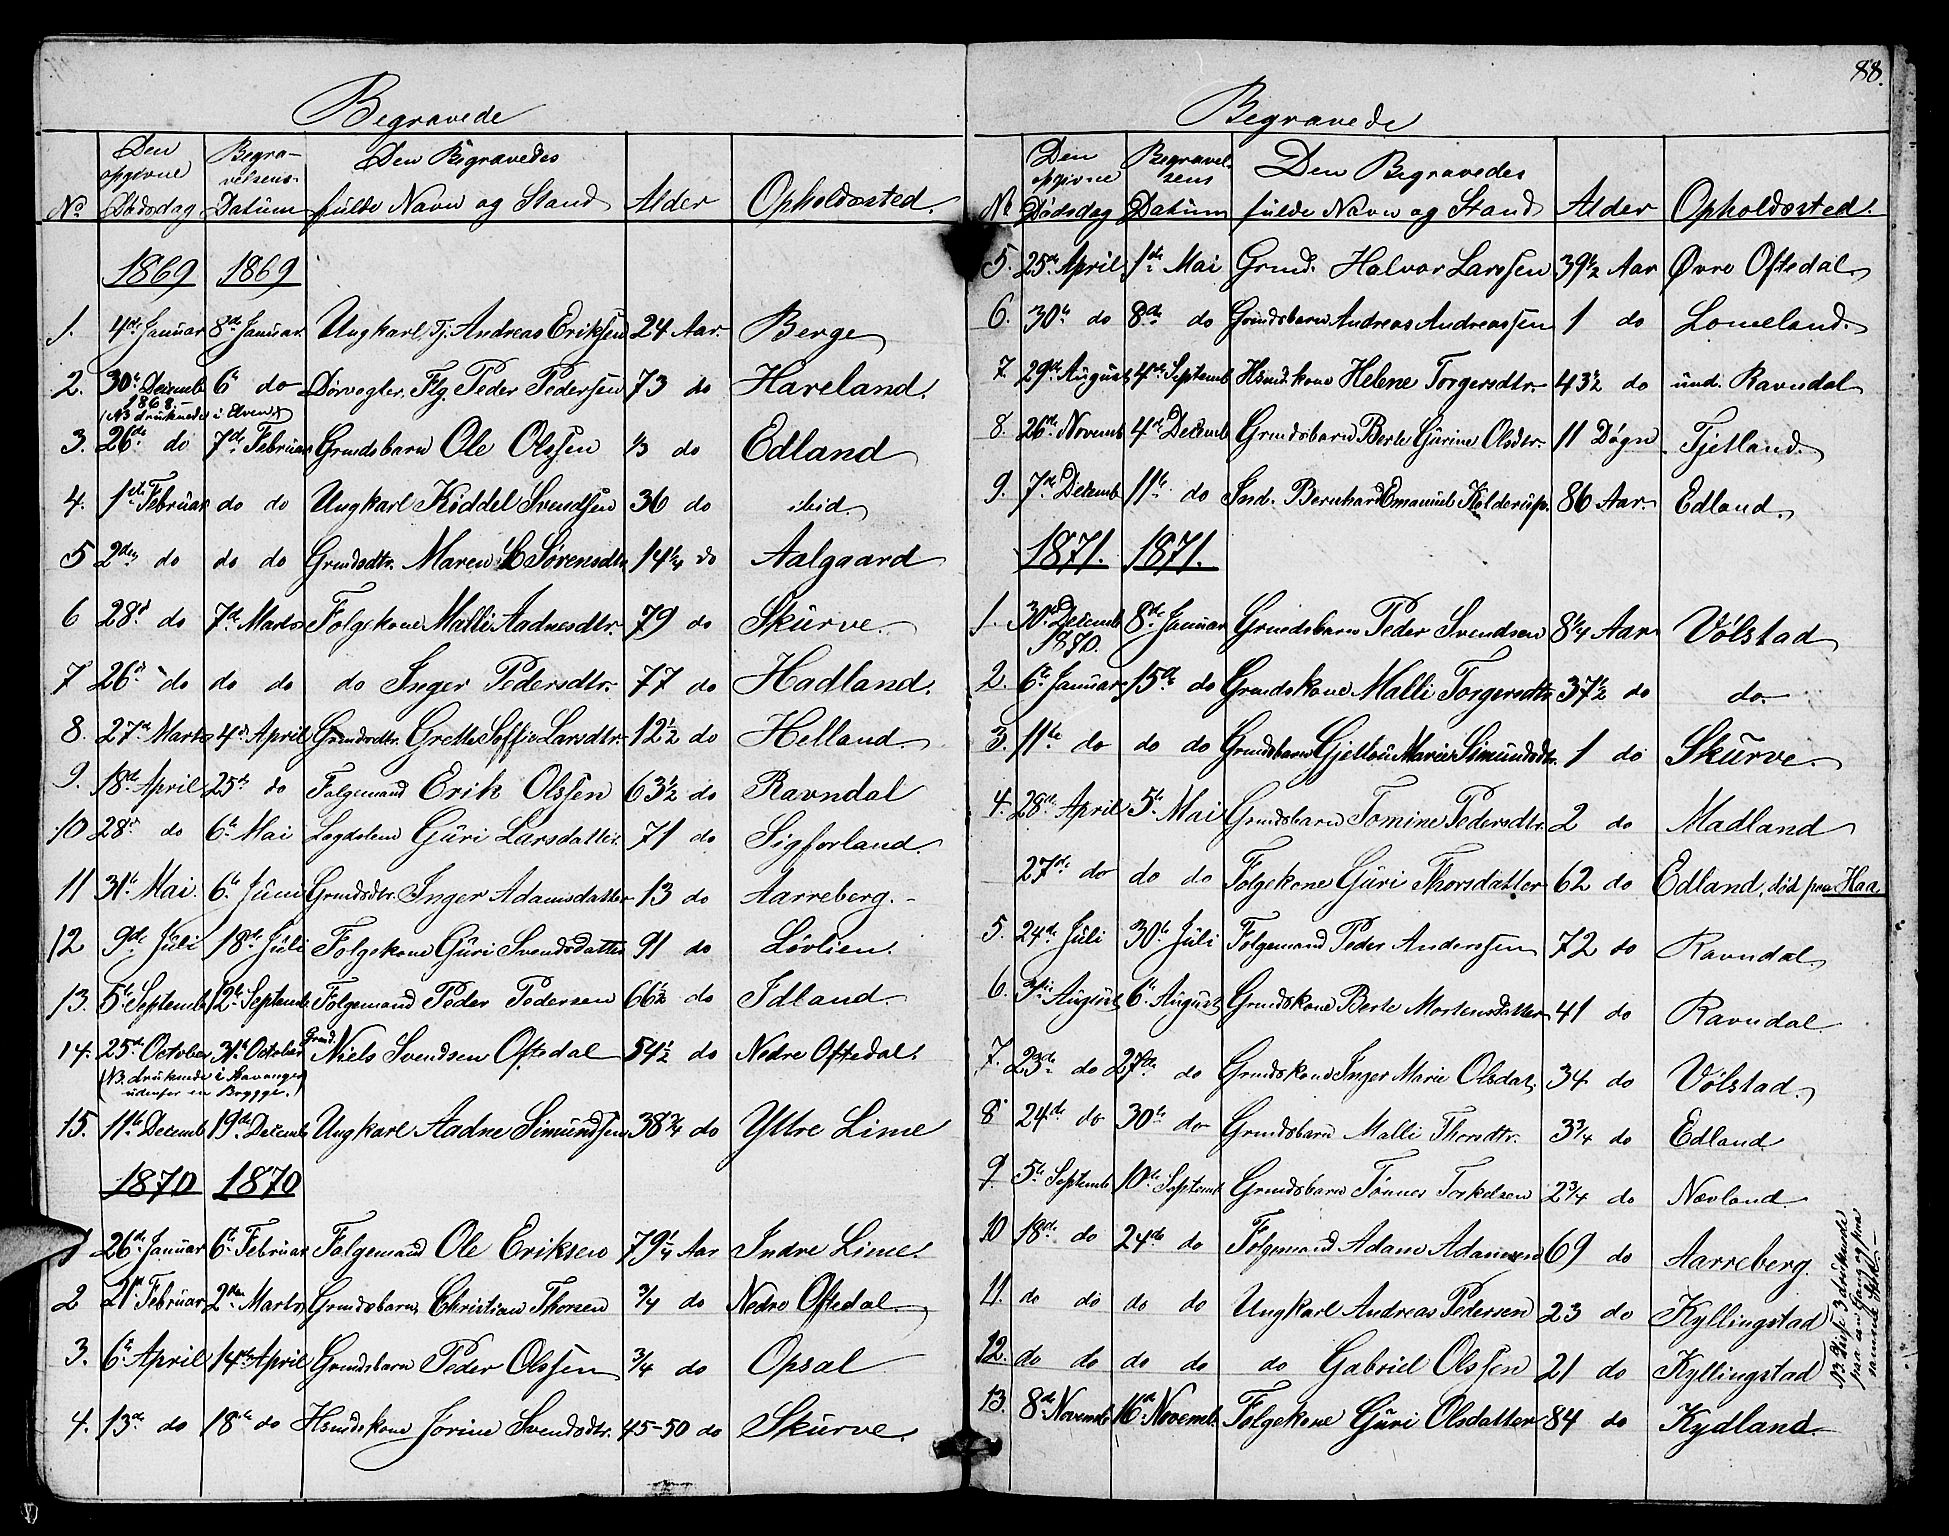 Begravede
No. Den opgivne Dødsdag Begravelsens Datum Den Begravedes fulde Navn og Stand Alder Opholdssted.
1869 1869
1. 4de Januar 8de Januar Ungkarl, Tj. Andreas Eriksen 24 Aar Berge
2. 30te Decemb. 1868. 6te do Flg. Peder Pedersen 73 do Hareland.
(NB druknede i Elven)
3. 26de do 7de Februar Grmdsbarn Ole Olssen ⅓ do Edland
4. 1ste Februar do do Ungkarl Kiddel Svendsen 36 do ibid.
5 2den do do do Grmdsdtr. Maren Sørensdtr. 14¼ do Aalgaard
6 28de do 7de Marts Folgekone Malli Aadnesdtr. 79 do Skurve.
7 26de do do do do Inger Pedersdtr. 77 do Hadland.
8. 27de Marts 4de April Grmdsdtr. Grethe Soffie Larsdtr. 12½ do Helland
9. 18de April 25de do Folgemand Erik Olssen 63½ do Ravndal
10 28de do 6te Mai Lægdslem Guri Larsdatter 71 do Sigforland.
11 31te Mai. 6te Juni Grmdsdtr. Inger Adamsdatter 13 do Aarreberg.
12 9de Juli 18de Juli Folgekone Guri Svendsdatter 91 do Lövlien.
13. 5te Septemb. 12te Septemb. Folgemand Peder Pedersen 66½ do Idland.
14. 25de October 31te October Grmd. Niels Svendsen Oftedal 54½ do Nedre Oftedal.
(NB. druknede i Stavanger udenfor en Brygge.)
15. 11te Decemb. 19de Decemb. Ungkarl Aadne Simundsen 38¾ do Yttre Lime
1870 1870
1 26de Januar 6te Februar Folgemand Ole Eriksen 79¼ Aar Indre Lime.
2 21de Februar 2den Marts Grmdsbarn Christian Thorsen ¾ do Nedre Oftedal
3. 6te April 14de April Grmdsbarn Peder Olssen ¾ do Opsal
4. 13de do 18de do Hsmdskone Jorine Svendsdtr. 45-50 do Skurve.
88.
Begravede
No. Den opgivne Dødsdag Begravelsens Datum Den Begravedes fulde Navn og Stand Alder Opholdssted.
5. 25de April 1ste Mai Grmd. Halvor Larssen 39½ Aar Øvre Oftedal.
6. 30te do 8de do Grmdsbarn Andreas Andreassen 1 do Lomeland.
7. 29de August 4de Septemb. Hsmdskone Helene Torgersdtr. 43½ do und. Ravndal
8. 26de Novemb. 4de Decemb. Grmdsbarn Berte Gurine Olsdtr. 11 Døgn Tjetland.
9. 7de Decemb. 11te do Bernhard Emanuel Kolderup. 86 Aar. Edland.
1871. 1871.
1. 30te Decemb. 1870. 8de Januar Grmdsbarn Peder Svendsen 8¼ Aar Völstad
2. 6te Januar 15de do Grmdskone Malli Torgersdtr. 37½ do do
3. 11te do do do Grmdsbarn Marie Simundsdtr. 1 do Skurve.
4. 28de April 5te Mai Grmdsbarn Tomine Pedersdtr. 2 do Madland
27de do do do Folgekone Guri Thorsdatter 62 do Edland, död paa Haa.
5. 24de Juli 30te Juli Folgemand Peder Anderssen 72 do Ravndal.
6. 3die August 6te August Grmdskone Berte Mortensdatter 41 do Ravndal
7. 23de do 27de do Grmdskone Inger Marie Olsdat. 34 do Völstad.
8 24de do 30te do Grmdsbarn Malli Thorsdtr. 3¾ do Edland.
9. 5te Septemb. 10de Septemb. Grmdsbarn Tönnes Torkelsen 2¾ do Nævland.
10 18de do 24de do Folgemand Adam Adamsen 69 do Aarreberg.
11. do do do do Ungkarl Andreas Pedersen 23 do Kyllingstad
12. do do do do do Gabriel Olssen 21 do Kyllingstad
NB. Disse 3 druknede paa een Gang og paa samme Sted.
13. 8de Novemb. 16de Novemb. Folgekone Guri Olsdatter 84 do Kydland